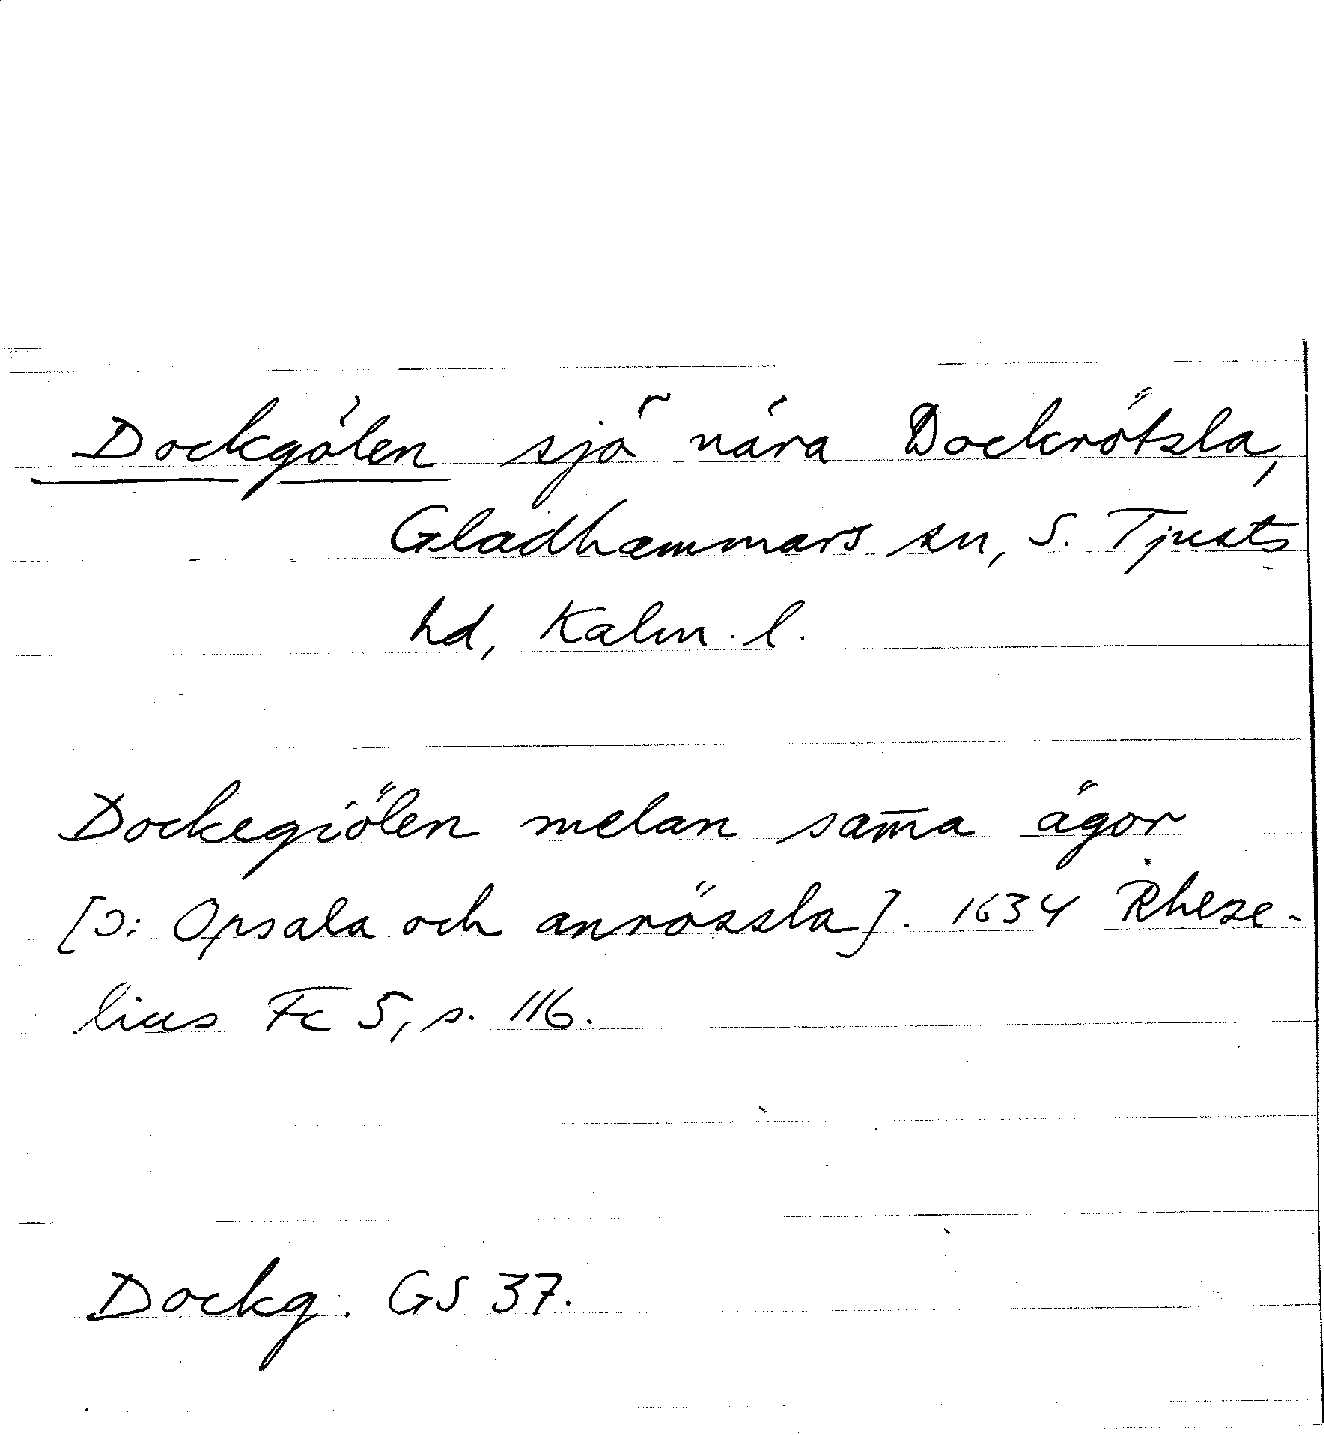 Dockgölen sjö nära Dockrötsla,
Gladhammars sn, S. Tjusts
hd, Kalm. l.
Dockegiölen melan sam̄a ägor
[ɔ: Opsala och anrössla]. 1634 Rheze-
lius Fc 5, s. 116.
Dockg. GS 37.